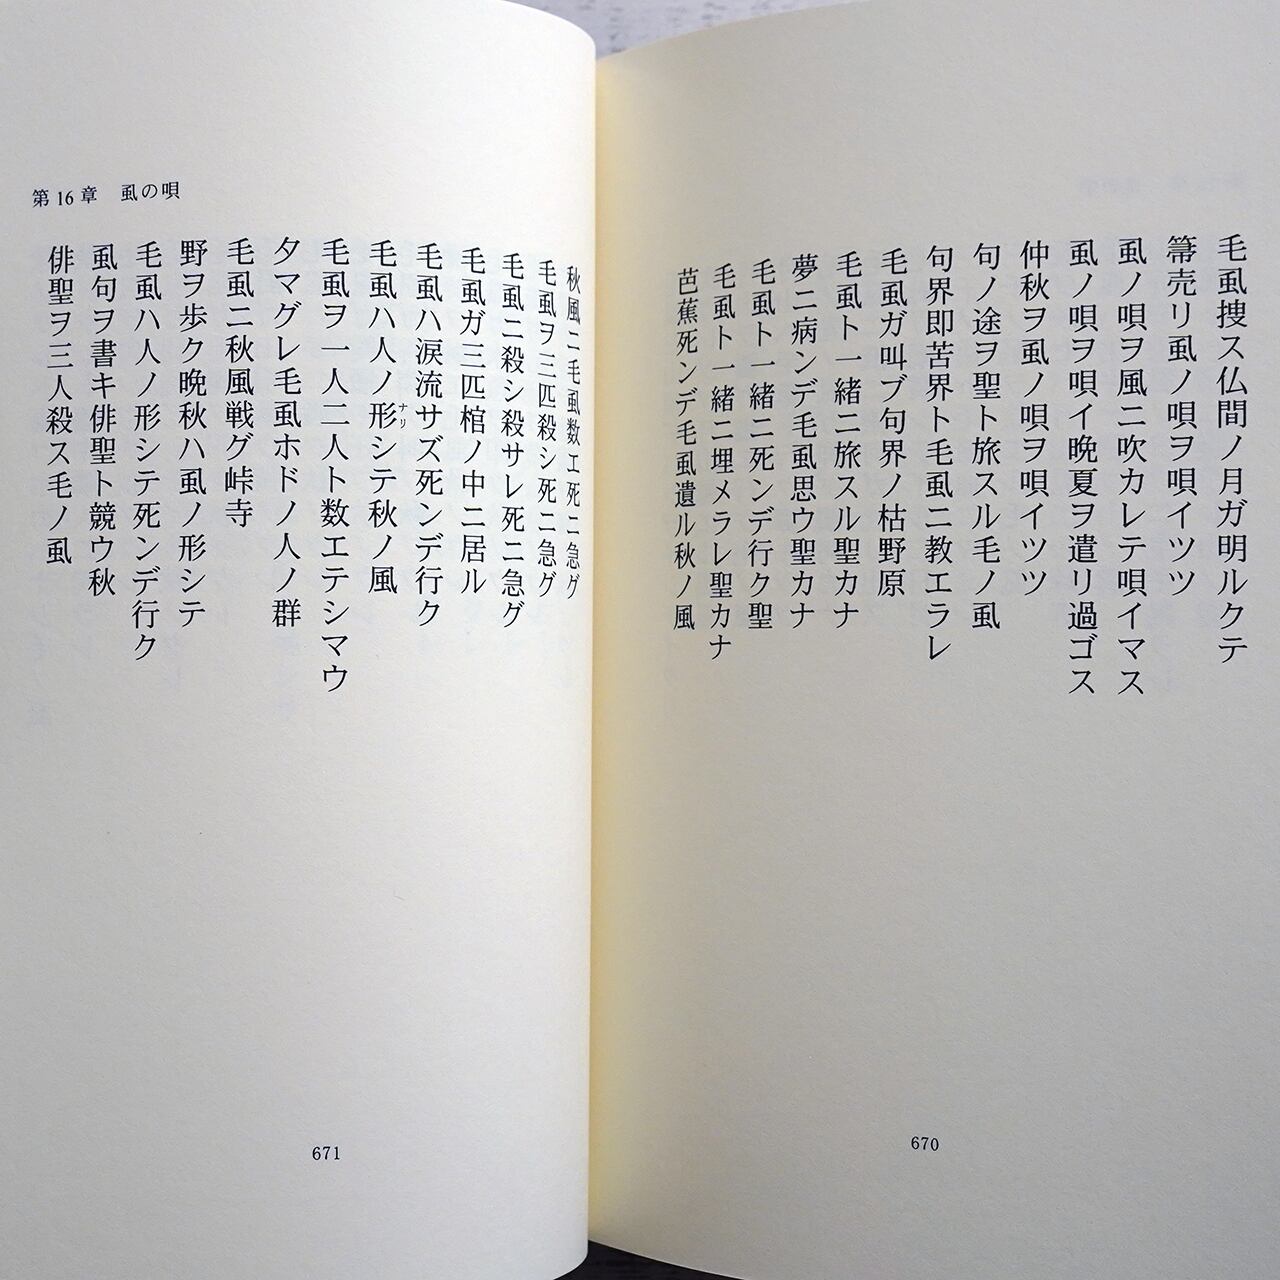 毛虱捜ス仏間ノ月ガ明ルクテ
箒売リ虱ノ唄ヲ唄イツツ
虱ノ唄ヲ風ニ吹カレテ唄イマス
虱ノ唄ヲ唄イ晩夏ヲ遣リ過ゴス
仲秋ヲ虱ノ唄ヲ唄イツツ
句ノ途ヲ聖ト旅スル毛ノ虱
句界即苦界ト毛虱ニ教エラレ
毛虱ガ叫ブ句界ノ枯野原
毛虱ト一緒ニ旅スル聖カナ
夢ニ病ンデ毛虱思ウ聖カナ
毛虱ト一緒ニ死ンデ行ク聖
毛虱ト一緒ニ埋メラレ聖カナ
芭蕉死ンデ毛虱遺ル秋ノ風
670
第16章 虱の唄
秋風ニ毛虱数エ死ニ急グ
毛虱ヲ三匹殺シ死ニ急グ
毛虱ニ殺シ殺サレ死ニ急グ
毛虱ガ三匹棺ノ中ニ居ル
毛虱ハ涙流サズ死ンデ行ク
毛虱ハ人ノ形シテ秋ノ風
ナリ
毛虱ヲ一人二人ト数エテシマウ
夕マグレ毛虱ホドノ人ノ群
毛虱ニ秋風戦グ峠寺
野ヲ歩ク晩秋ハ虱ノ形シテ
毛虱ハ人ノ形シテ死ンデ行ク
虱句ヲ書キ俳聖ト競ウ秋
俳聖ヲ三人殺ス毛ノ虱
671